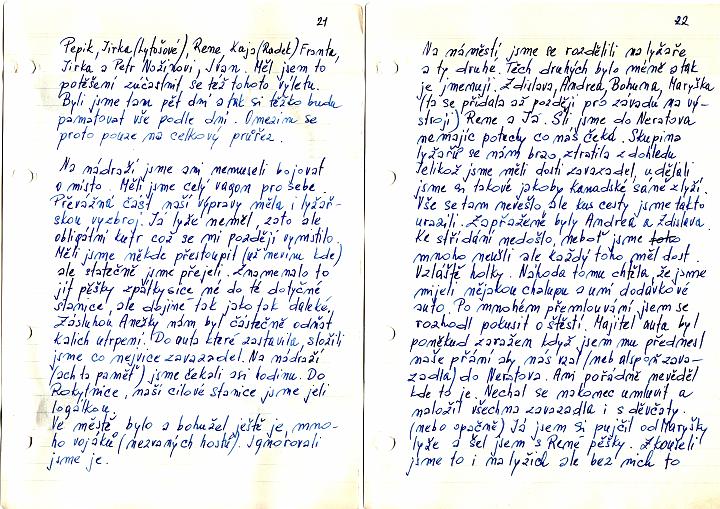 21
Pepík, Jirka (Lytošové), Rene, Kaja (Radek) Franta,
Jirka a Petr Nožinovi, Ivan. Měl jsem to
potěšení zúčastnit se též tohoto výletu.
Byli jsme tam pět dní a tak si těžko budu
pamatovat vše podle dní. Omezím se
proto pouze na celkový průřez.
Na nádraží jsme ani nemuseli bojovat
o místo. Měli jsme celý vagon pro sebe.
Převážná část naší výpravy měla i lyžař-
skou výzbroj. Já lyže neměl, zato ale
obligátní kufr což se mi později vymstilo.
Měli jsme někde přestoupit (už nevím kde)
ale statečně jsme přejeli. Znamenalo to
jít pěšky zpátky sice ne do té dotyčné
stanice, ale do jiné tak jako tak daleko,
Zásluhou Anežky nám byl částečně odňat
kalich utrpení. Do auta které zastavila, složili
jsme co nejvíce zavazadel. Na nádraží
(ach ta paměť) jsme čekali asi hodinu. Do
Rokytnice, naší cílové stanice jsme jeli
logálkou.
Ve městě bylo a bohužel ještě je, mno-
ho vojáků (nezvaných hostů). Ignorovali
jsme je.
22
Na náměstí jsme se rozdělili na lyžaře
a ty druhé. Těch druhých bylo méně a tak
je jmenuji. Zdislava, Andrea, Bohuna, Maryška
(ta se přidala až později pro závadu na vý-
stroji) Rene a Já. Šli jsme do Neratova
nemajíc potechy co nás čeká. Skupina
lyžařů se nám brzo ztratila z dohledu
Jelikož jsme měli dosti zavazadel, udělali
jsme si takové jakoby kanadské sáně z lyží.
Vše se tam nevešlo, ale kus cesty jsme takto
urazili. Zapřažené byly Andrea a Zdislava.
Ke střídání nedošlo, neboť jsme toho
mnoho neušli ale každý toho měl dost.
Vzláště holky. Náhoda tomu chtěla, že jsme
míjeli nějakou chalupu a u ní dodávkové
auto. Po mnohém přemlouvání jsem se
rozhodl pokusit o štěstí. Majitel auta byl
poněkud zaražen když jsem mu přednesl
naše přání aby nás vzal (neb alspoň zava-
zadla) do Neratova. Ani pořádně nevěděl
kde to je. Nechal se nakonec umluvit a
naložil všechna zavazadla i s děvčaty.
(nebo opačně) Já jsem si pujčil od Maryšky
lyže a šel jsem s René pěšky. Zkoušeli
jsme to i na lyžích ale bez nich to